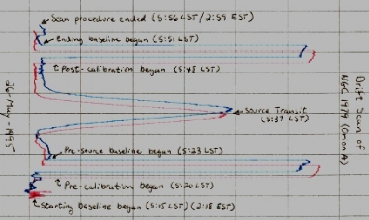 Scan procedure ended (5:56 LST/2:59 EST)
Ending baseline begun (5:51 LST)
Post-calibration begun (5:48 LST)
Source Transit
(5:37 LST)
Pre-source baseline begun (5:23 LST)
Pre-calibration begun (5:20 LST)
Starting baseline begun (5:15 LST) (2:18 EST)
Drift Scan of
NGC 1976 (Orion A)
26-May-1995